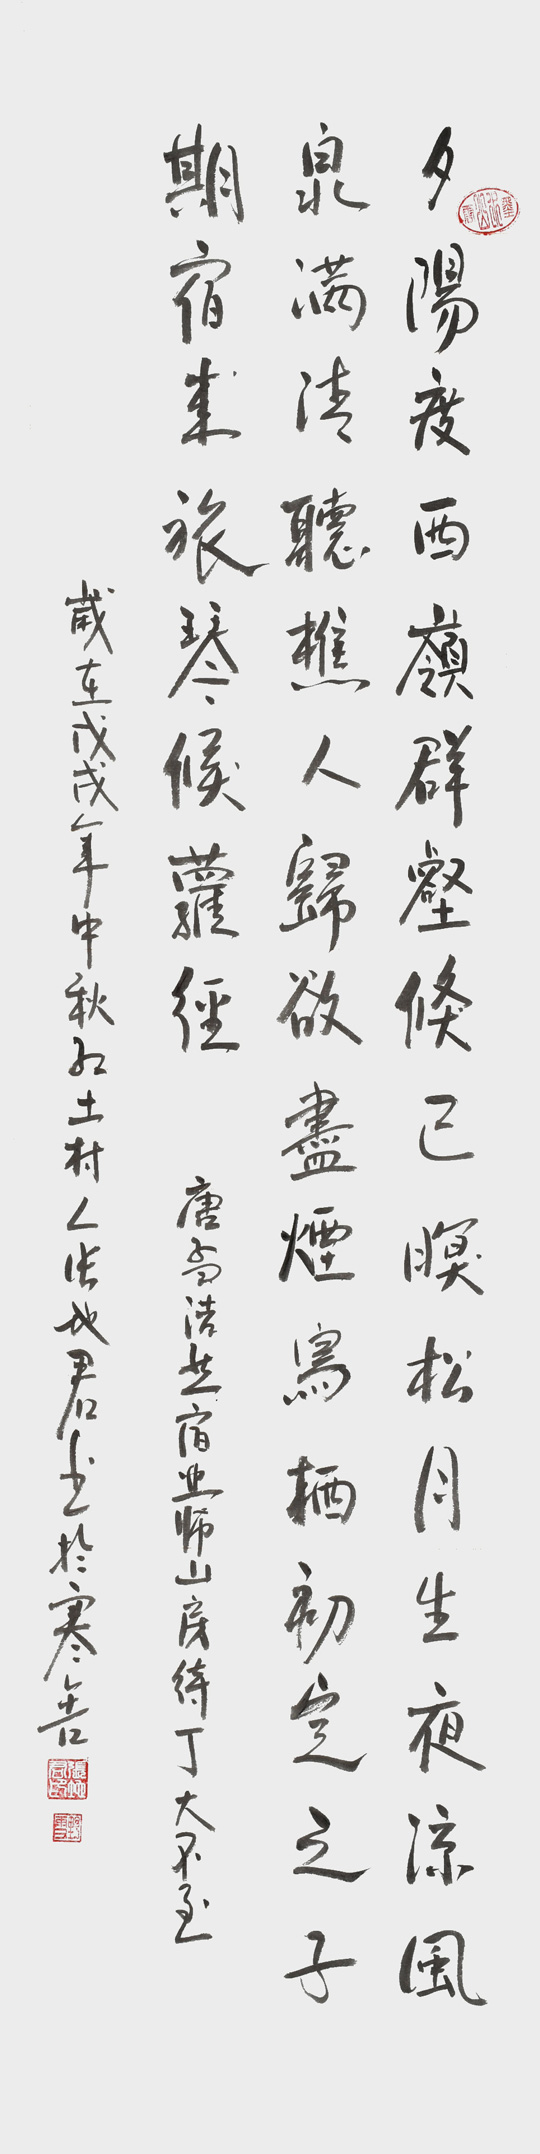 夕陽度西嶺群壑倏已暝松月生夜涼風
泉满清聽樵人歸欲盡煙鳥栖初定之子
期宿来孤琴候蘿徑
唐孟浩然宿业师山房待丁大不至
歲在戊戌年中秋红土村人张君书於寒舍